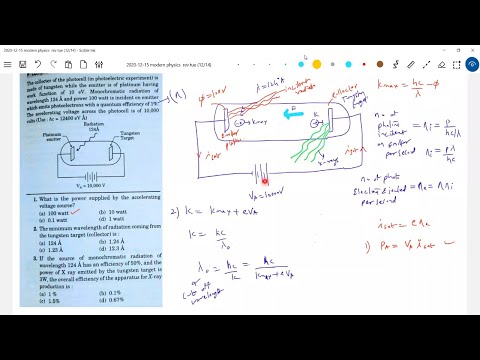 2020-12-15 modern physics rev tue (12/14) - Scribe Ink
2020-12-15 modern physics rev tue (12/14)
The collector of the photocell (in photoelectric experiment) is
made of tungsten while the emitter is of platinum having
work function of 10 eV. Monochromatic radiation of
wavelength 124 Å and power 100 watt is incident on emitter
which emits photoelectrons with a quantum efficiency of 1%.
The accelerating voltage across the photocell is of 10,000
volts (Use : hc = 12400 eV Å)
Radiation
124Å
Platinum
emitter
Tungsten
Target
= 10,000 V
1. What is the power supplied by the accelerating
voltage source?
(a) 100 watt (b) 10 watt
(c) 0.1 watt (d) 1 watt
2. The minimum wavelength of radiation coming from the
tungsten target (collector) is :
(a) 124 Å (b) 1.24 Å
(c) 1.23 Å (d) 12.3 Å
3. If the source of monochromatic radiation of
wavelength 124 Å has an efficiency of 50%, and the
power of X ray emitted by the tungsten target is
1W, the overall efficiency of the apparatus for X-ray
production is :
(a) 1 % (b) 0.1%
(c) 1.5% (d) 0.67%
λ = 124 Å
incident
radiation
collector
Tungsten
target
emitter
K
x-rays
isat
isat
2) K = Kmax + eVA
K = hc/λ0
λ0 = hc/K = hc/(Kmax + eVA)
or
cut off
wavelength
Kmax = hc/λ - φ
no of
photons
incident
on emitter
per second
= ni = P/(hc/λ)
ni = Pλ/hc
no of photo
electrons
per second
= ne = η ni
isat = e ne
1) PA = VA isat